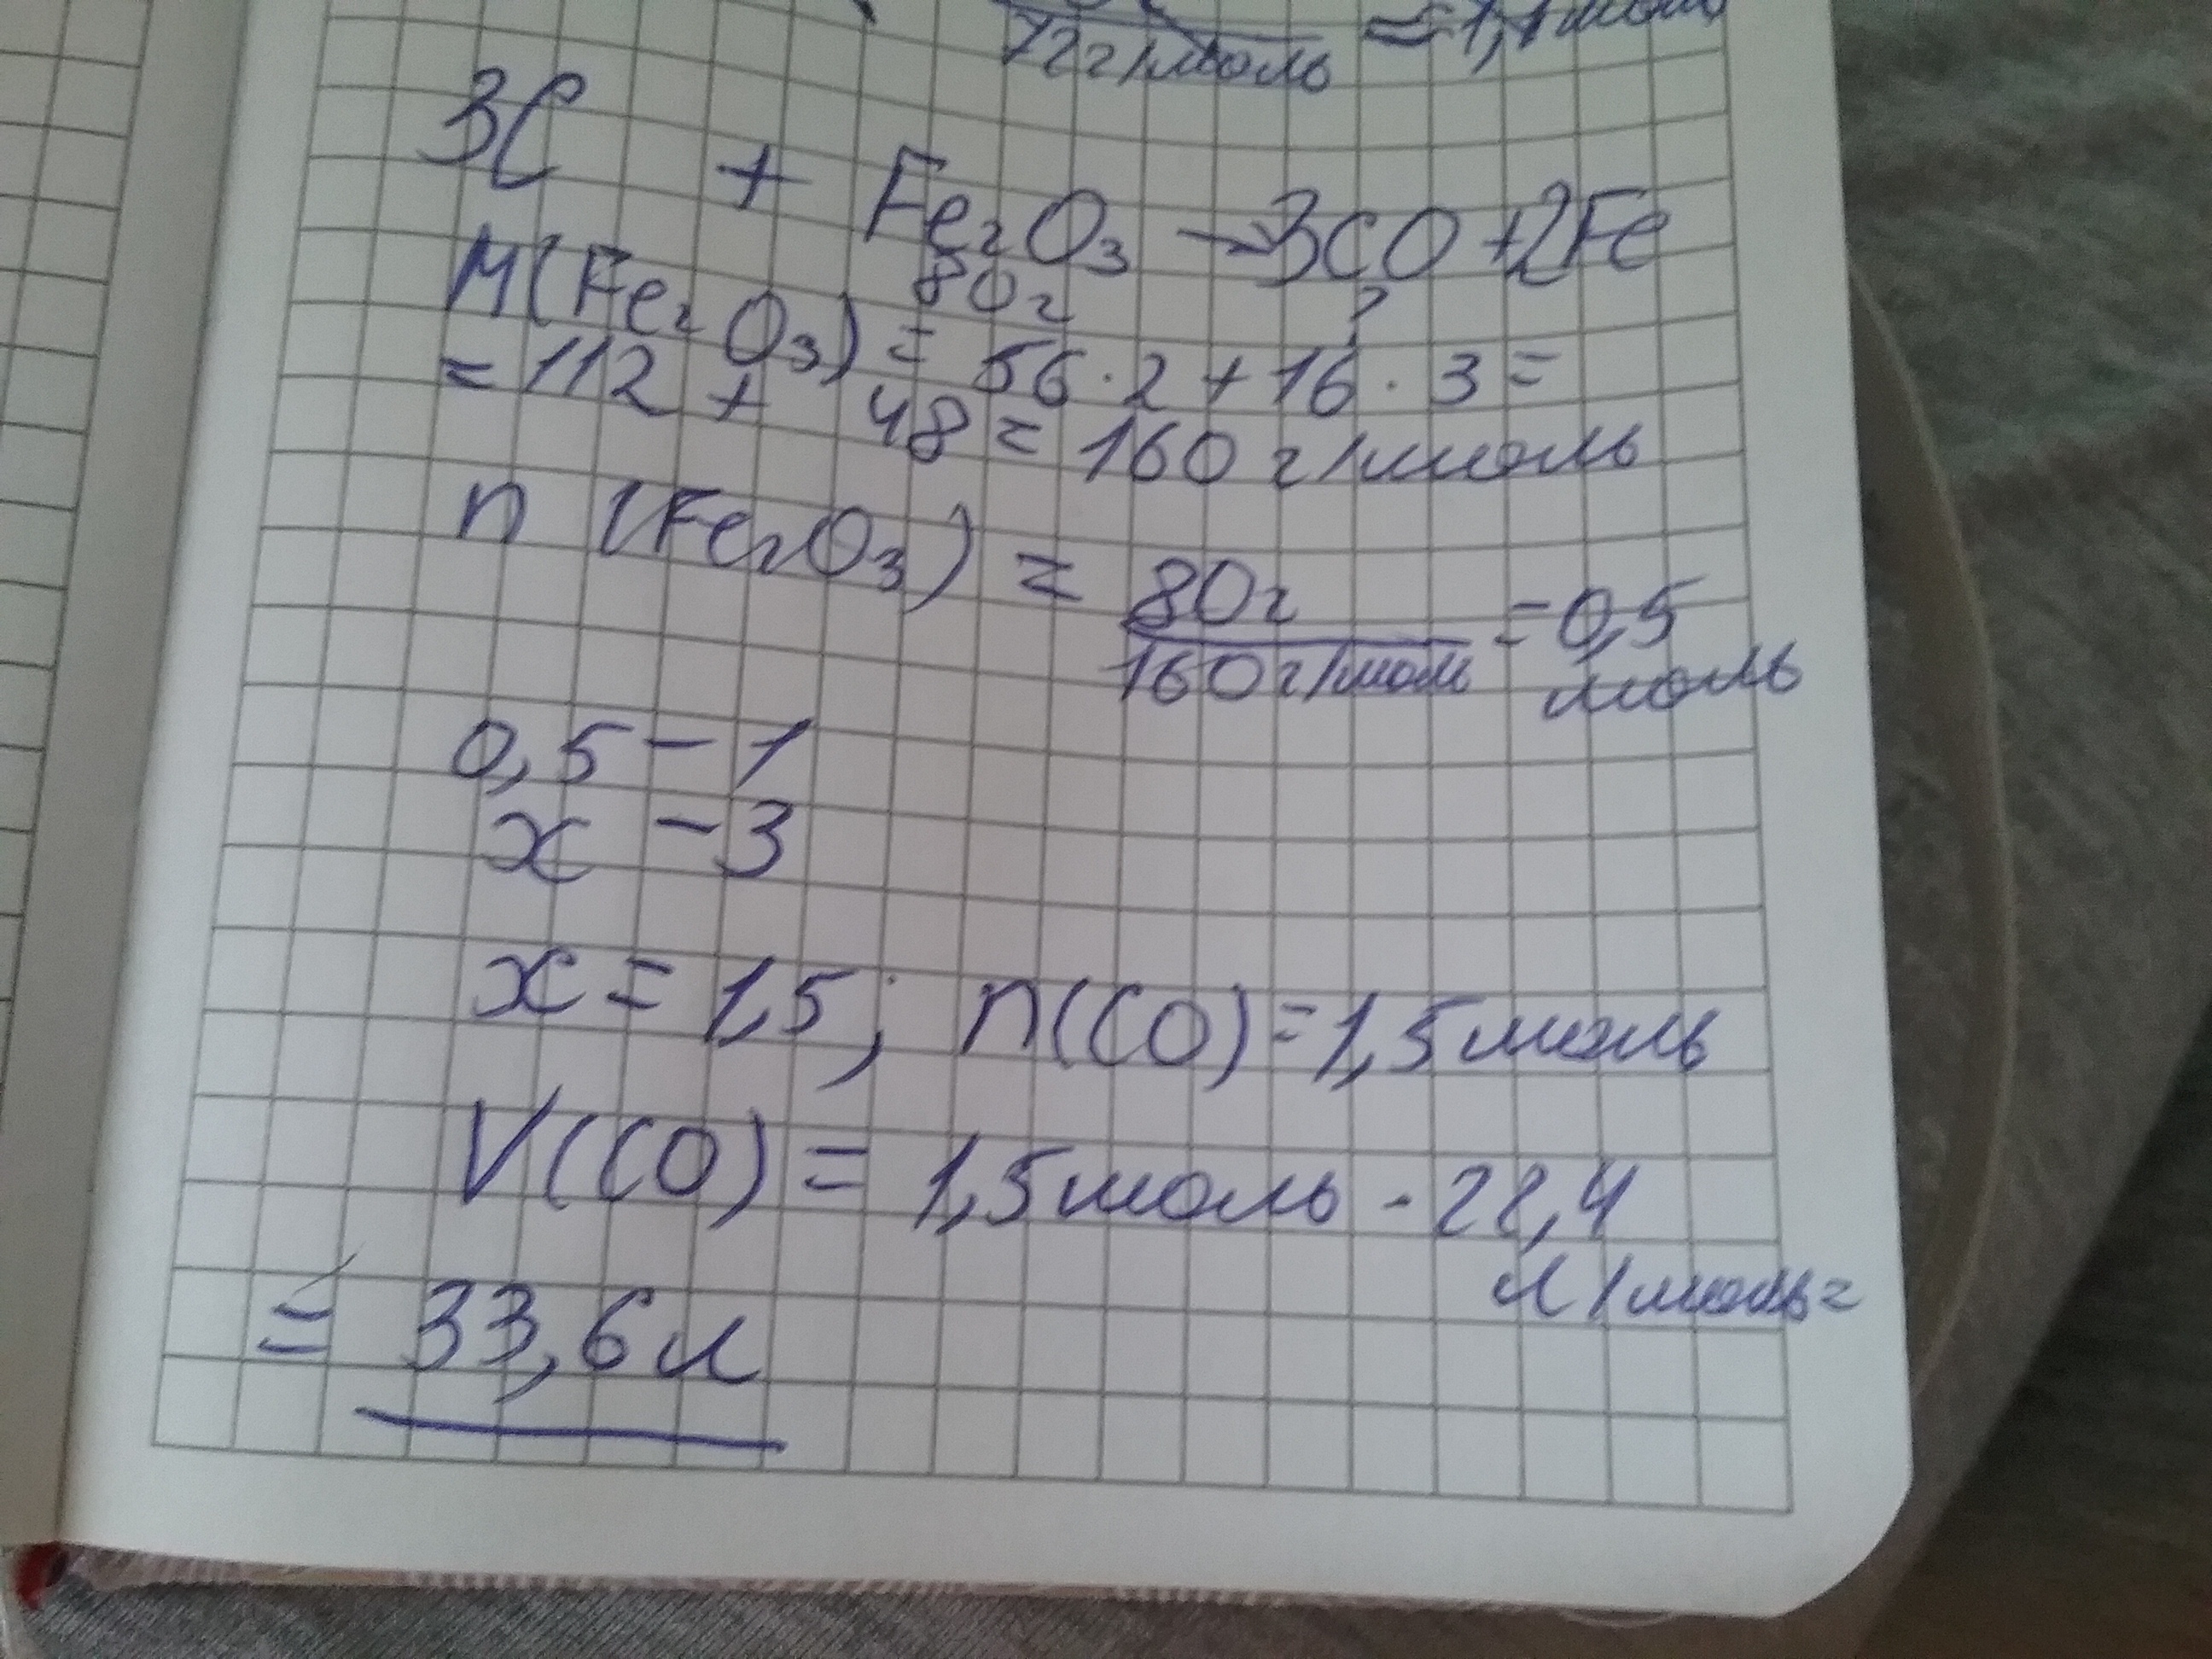 72г/моль ≈ 1,1моль
3C + Fe₂O₃ → 3CO + 2Fe
80г ?
M(Fe₂O₃) = 56 · 2 + 16 · 3 =
= 112 + 48 = 160 г/моль
n (Fe₂O₃) = 80г / 160г/моль = 0,5 моль
0,5 – 1
x – 3
x = 1,5; n(CO) = 1,5 моль
V(CO) = 1,5 моль · 22,4
л/моль =
= 33,6 л